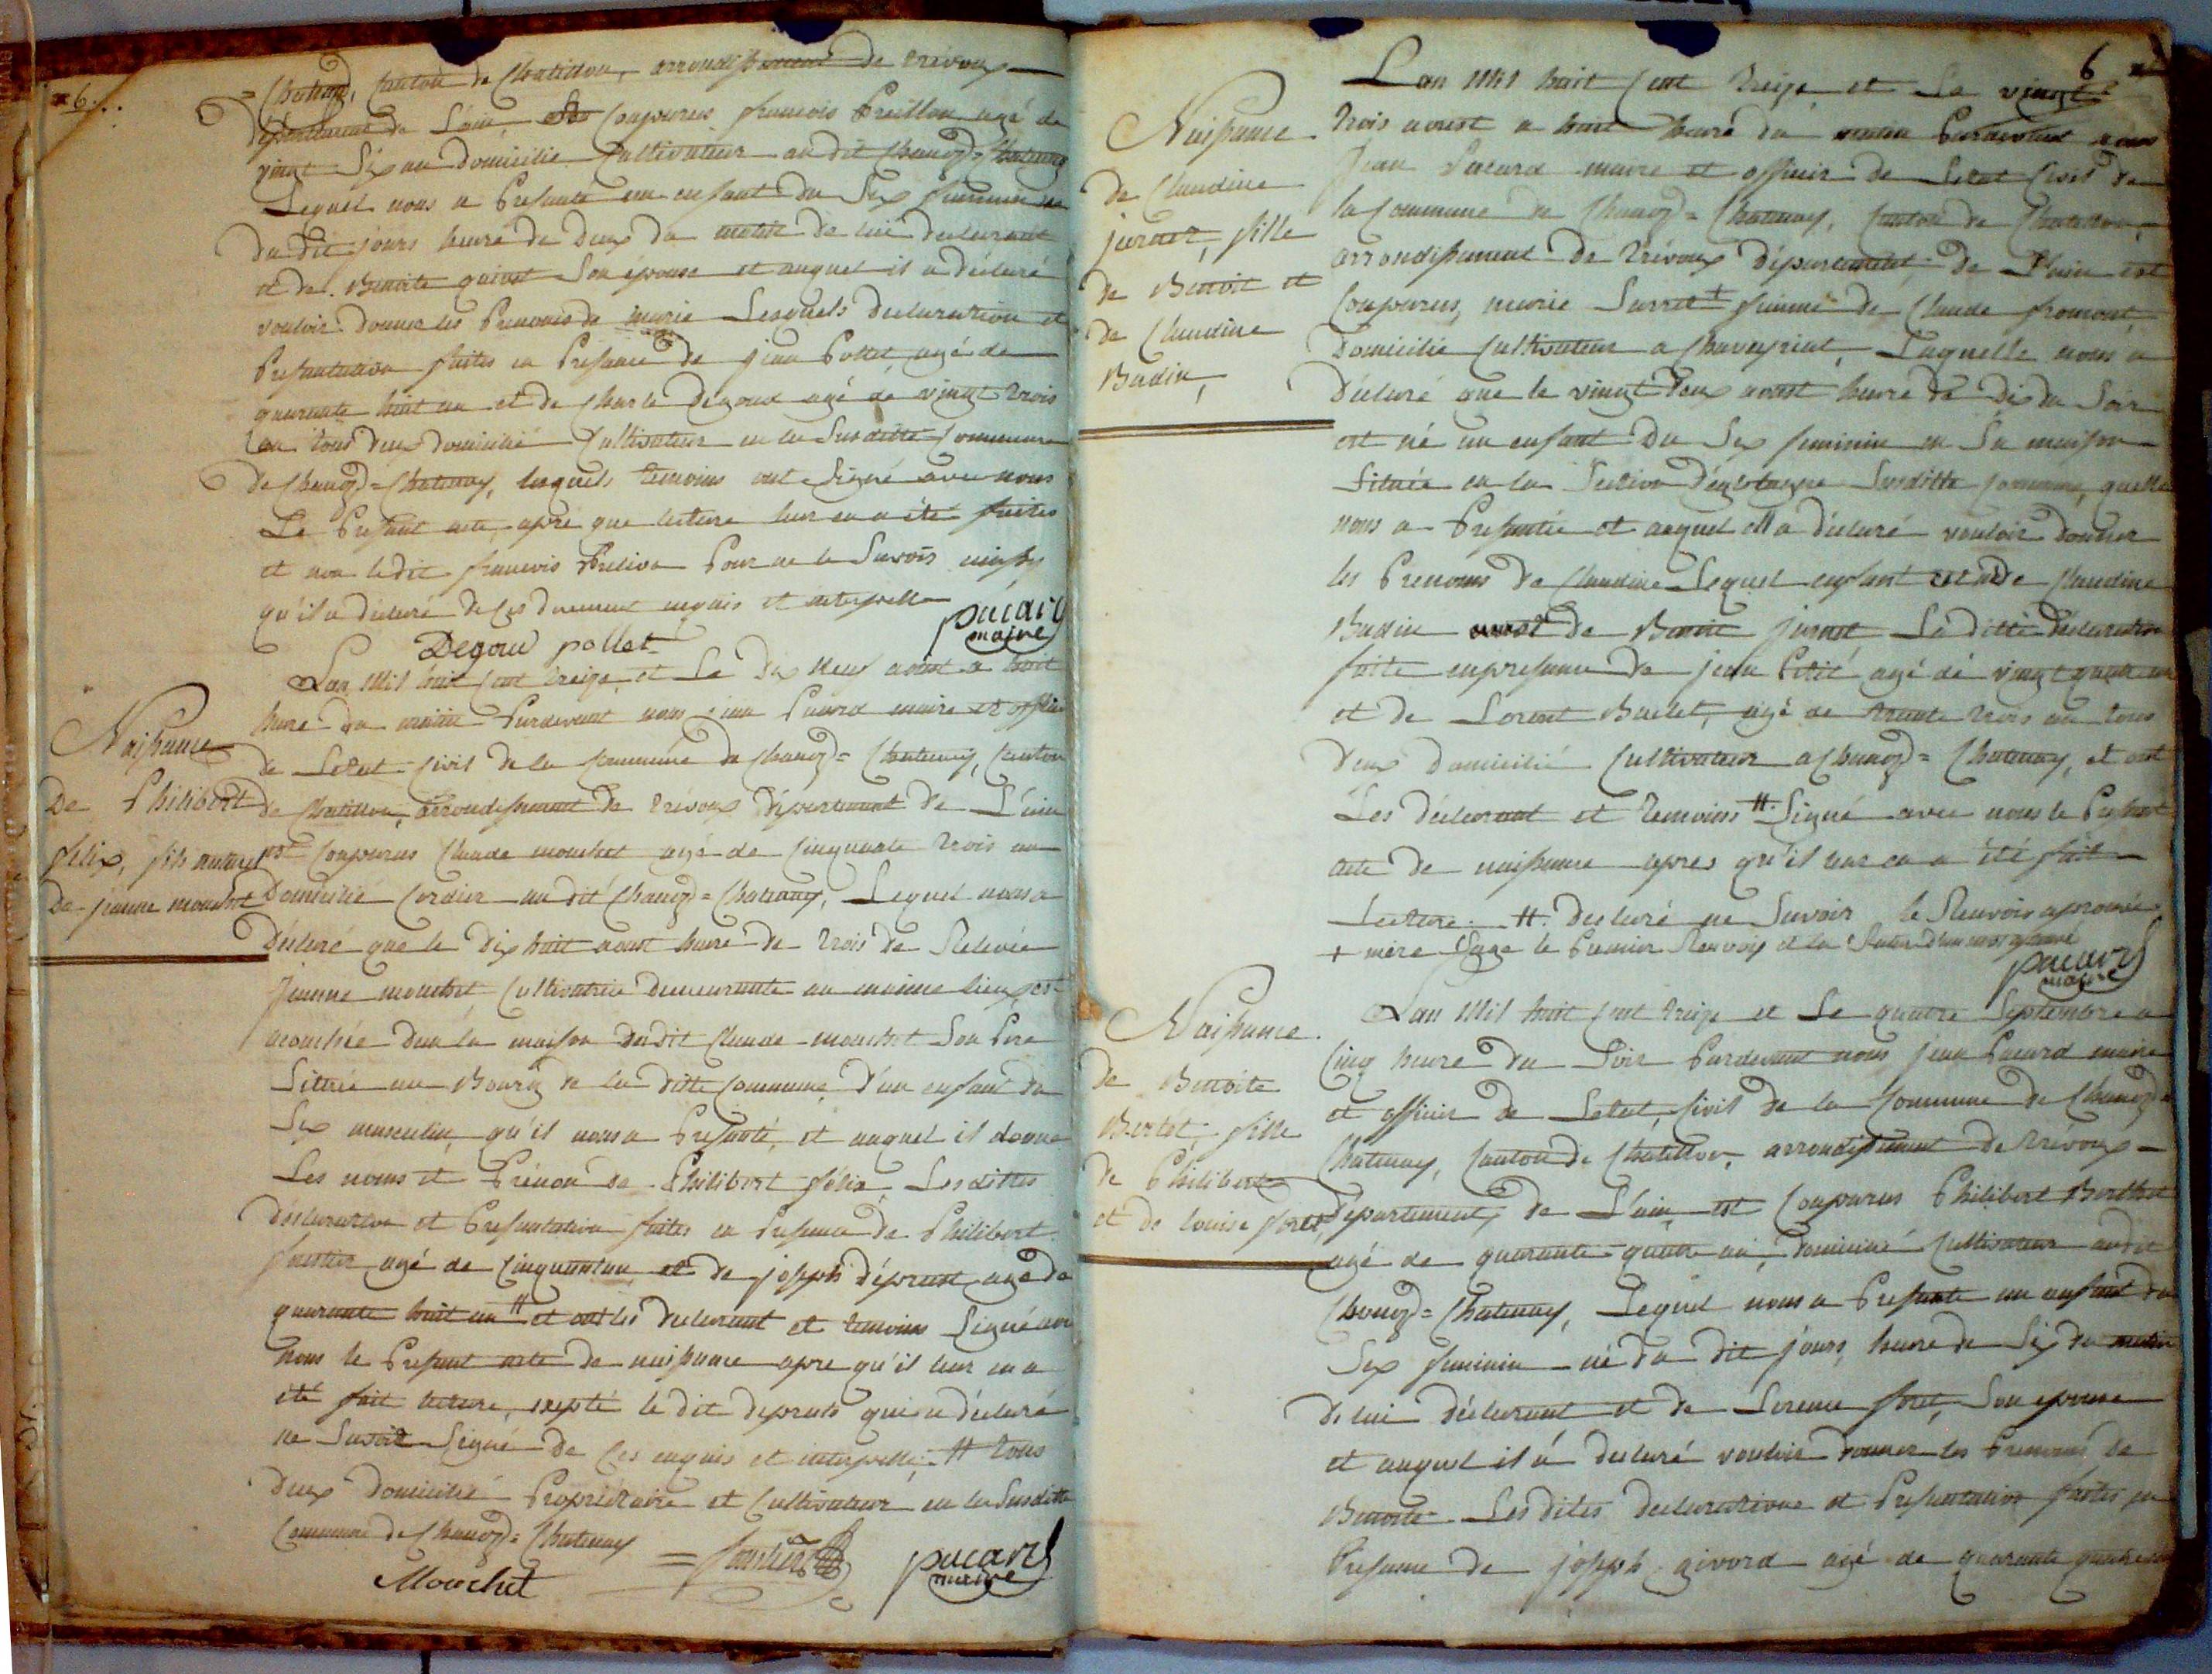 6
Chatenay, Canton de Chatillon, arrondissement de trévoux
département de L'ain, est Comparus françois Préillon agé de
vingt Six an domicilié Cultivateur au dit Chanoz=Chatenay
Lequel nous a Présenté un enfant du Sex feminin né
du dit jours heure de deux du matin de lui declarant
et de Benoite son épouse et auquel il a déclaré
vouloir donner les Prenoms de marie Lesquels declaration et
Présentation faites en Présence de jean Pollet, agé de
quarante huit an et de Charle Degoud agé de vingt trois
an tous deux domicilié Cultivateur en la Susditte Commune
de Chanoz=Chatenay, lesquels temoins ont Signé avec nous
Le Présent acte, apre que lecture leur en a été faites
et non le dit francois Pour ne le Savoir
qu'il a déclaré de Ces duement enquis et interpellé
Degoud pollet pacard
maire
Naissance
De Philibert
félix, fils naturel
De jeanne mouchet
Lan Mil huit Cent treize, et Le dix neuf aoust a huit
heure du matin Pardevant nous jean Pacard maire et officier
de Letat Civil de la Commune de Chanoz=Chatenay, Canton
de Chatillon, arrondissement de trévoux département de L'ain
est Comparus Claude mouchet agé de Cinquante trois an
Domicilié Cordier au dit Chanoz=Chatenay, Lequel nous a
Déclaré que le dix huit aoust heure de trois de Relevée
Jeanne mouchet Cultivatrice demeurante au meme lieux, est
acouchée dan la maison dudit Claude mouchet Son Pere
Située au Bourg de la ditte Commune, d'un enfant du
Sex masculin, qu'il nous a Présenté, et auquel il donne
Les noms et Prénon de Philibert félix, Lesdittes
déclaration et Présentation faites en Présence de Philibert
agé de Cinquante an et de joseph déprust agé de
quarante huit an # et ont les declarant et temoins Signé avec
nous le Présent acte de naissance apre qu'il leur en a
été fait lecture, excepté le dit deprust qui a déclaré
ne Savoir Signé de Ces enquis et interpellé, # tous
deux domicilié Propriétaire et Cultivateur en la Susditte
Commune de Chanoz=Chatenay
Mouchet pacard
maire
6
Naissance
de Claudine
jornet, fille
de Benoit et
de Claudine
Badin,
Lan Mil huit Cent treize et Le vingt
trois aoust a huit heure du matin Pardevant nous
Jean Pacard maire et officier de Letat Civil de
la Commune de Chanoz=Chatenay, Canton de Chatillon,
arrondissement de trévoux département de L'ain est
Comparus, marie + femme de Claude fromont,
Domicilié Cultivateur a Chaveyriat, Laquelle nous a
Déclaré que le vingt deux aoust heure de dix du Soir
est né un enfant du Sex feminin en Sa maison
Située en la Section Susditte Commune, quelle
nous a Présentée et auquel ell a déclaré vouloir donner
les Prenoms de Claudine Lequel enfant est né de Claudine
Badin de Benoit jornet, La ditte déclaration
faite en presence de jean Petit agé de vingt quatre an
et de Lorent Buclet, agé de trente trois an tous
deux domicilié Cultivateur a Chanoz=Chatenay, et ont
Les déclarant et temoins # Signé avec nous le Présent
acte de naissance apres qu'il leur en a été fait
Lecture. # déclaré ne Savoir le Renvois aprouvé
+ mere Sage le Premier Renvois et la Rature d'un mot aprouvé
pacard
maire
Naissance
de Benoite
Bertet, fille
de Philibert
et de louise foret,
Lan Mil huit Cent treize et Le quatre Septembre a
Cinq heure du Soir Pardevant nous jean Pacard maire
et officier de Letat Civil de la Commune de Chanoz=
Chatenay, Canton de Chatillon, arrondissement de trévoux
département, de L'ain est Comparus Philibert Berthet
agé de quarante quatre an, domicilié Cultivateur audit
Chanoz=Chatenay, Lequel nous a Présenté un enfant du
Sex feminin né du dit jours, heure de Six du matin
de lui déclarant et de foret, Son epouse
et auquel il a declaré vouloir donner les Prenoms de
Benoite Lesdites declarations et Présentation faites en
Présence de joseph givord agé de quarante quatre an